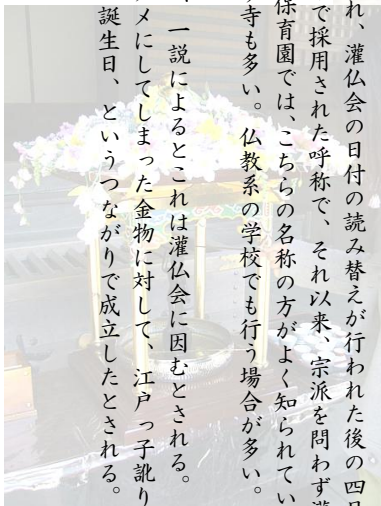 れ、灌仏会の日付の読み替えが行われた後の四月
で採用された呼称で、それ以来、宗派を問わず灌
保育園では、こちらの名称の方がよく知られてい
寺も多い。仏教系の学校でも行う場合が多い。
一説によるとこれは灌仏会に因むとされる。
メにしてしまった金物に対して、江戸っ子訛り
誕生日、というつながりで成立したとされる。